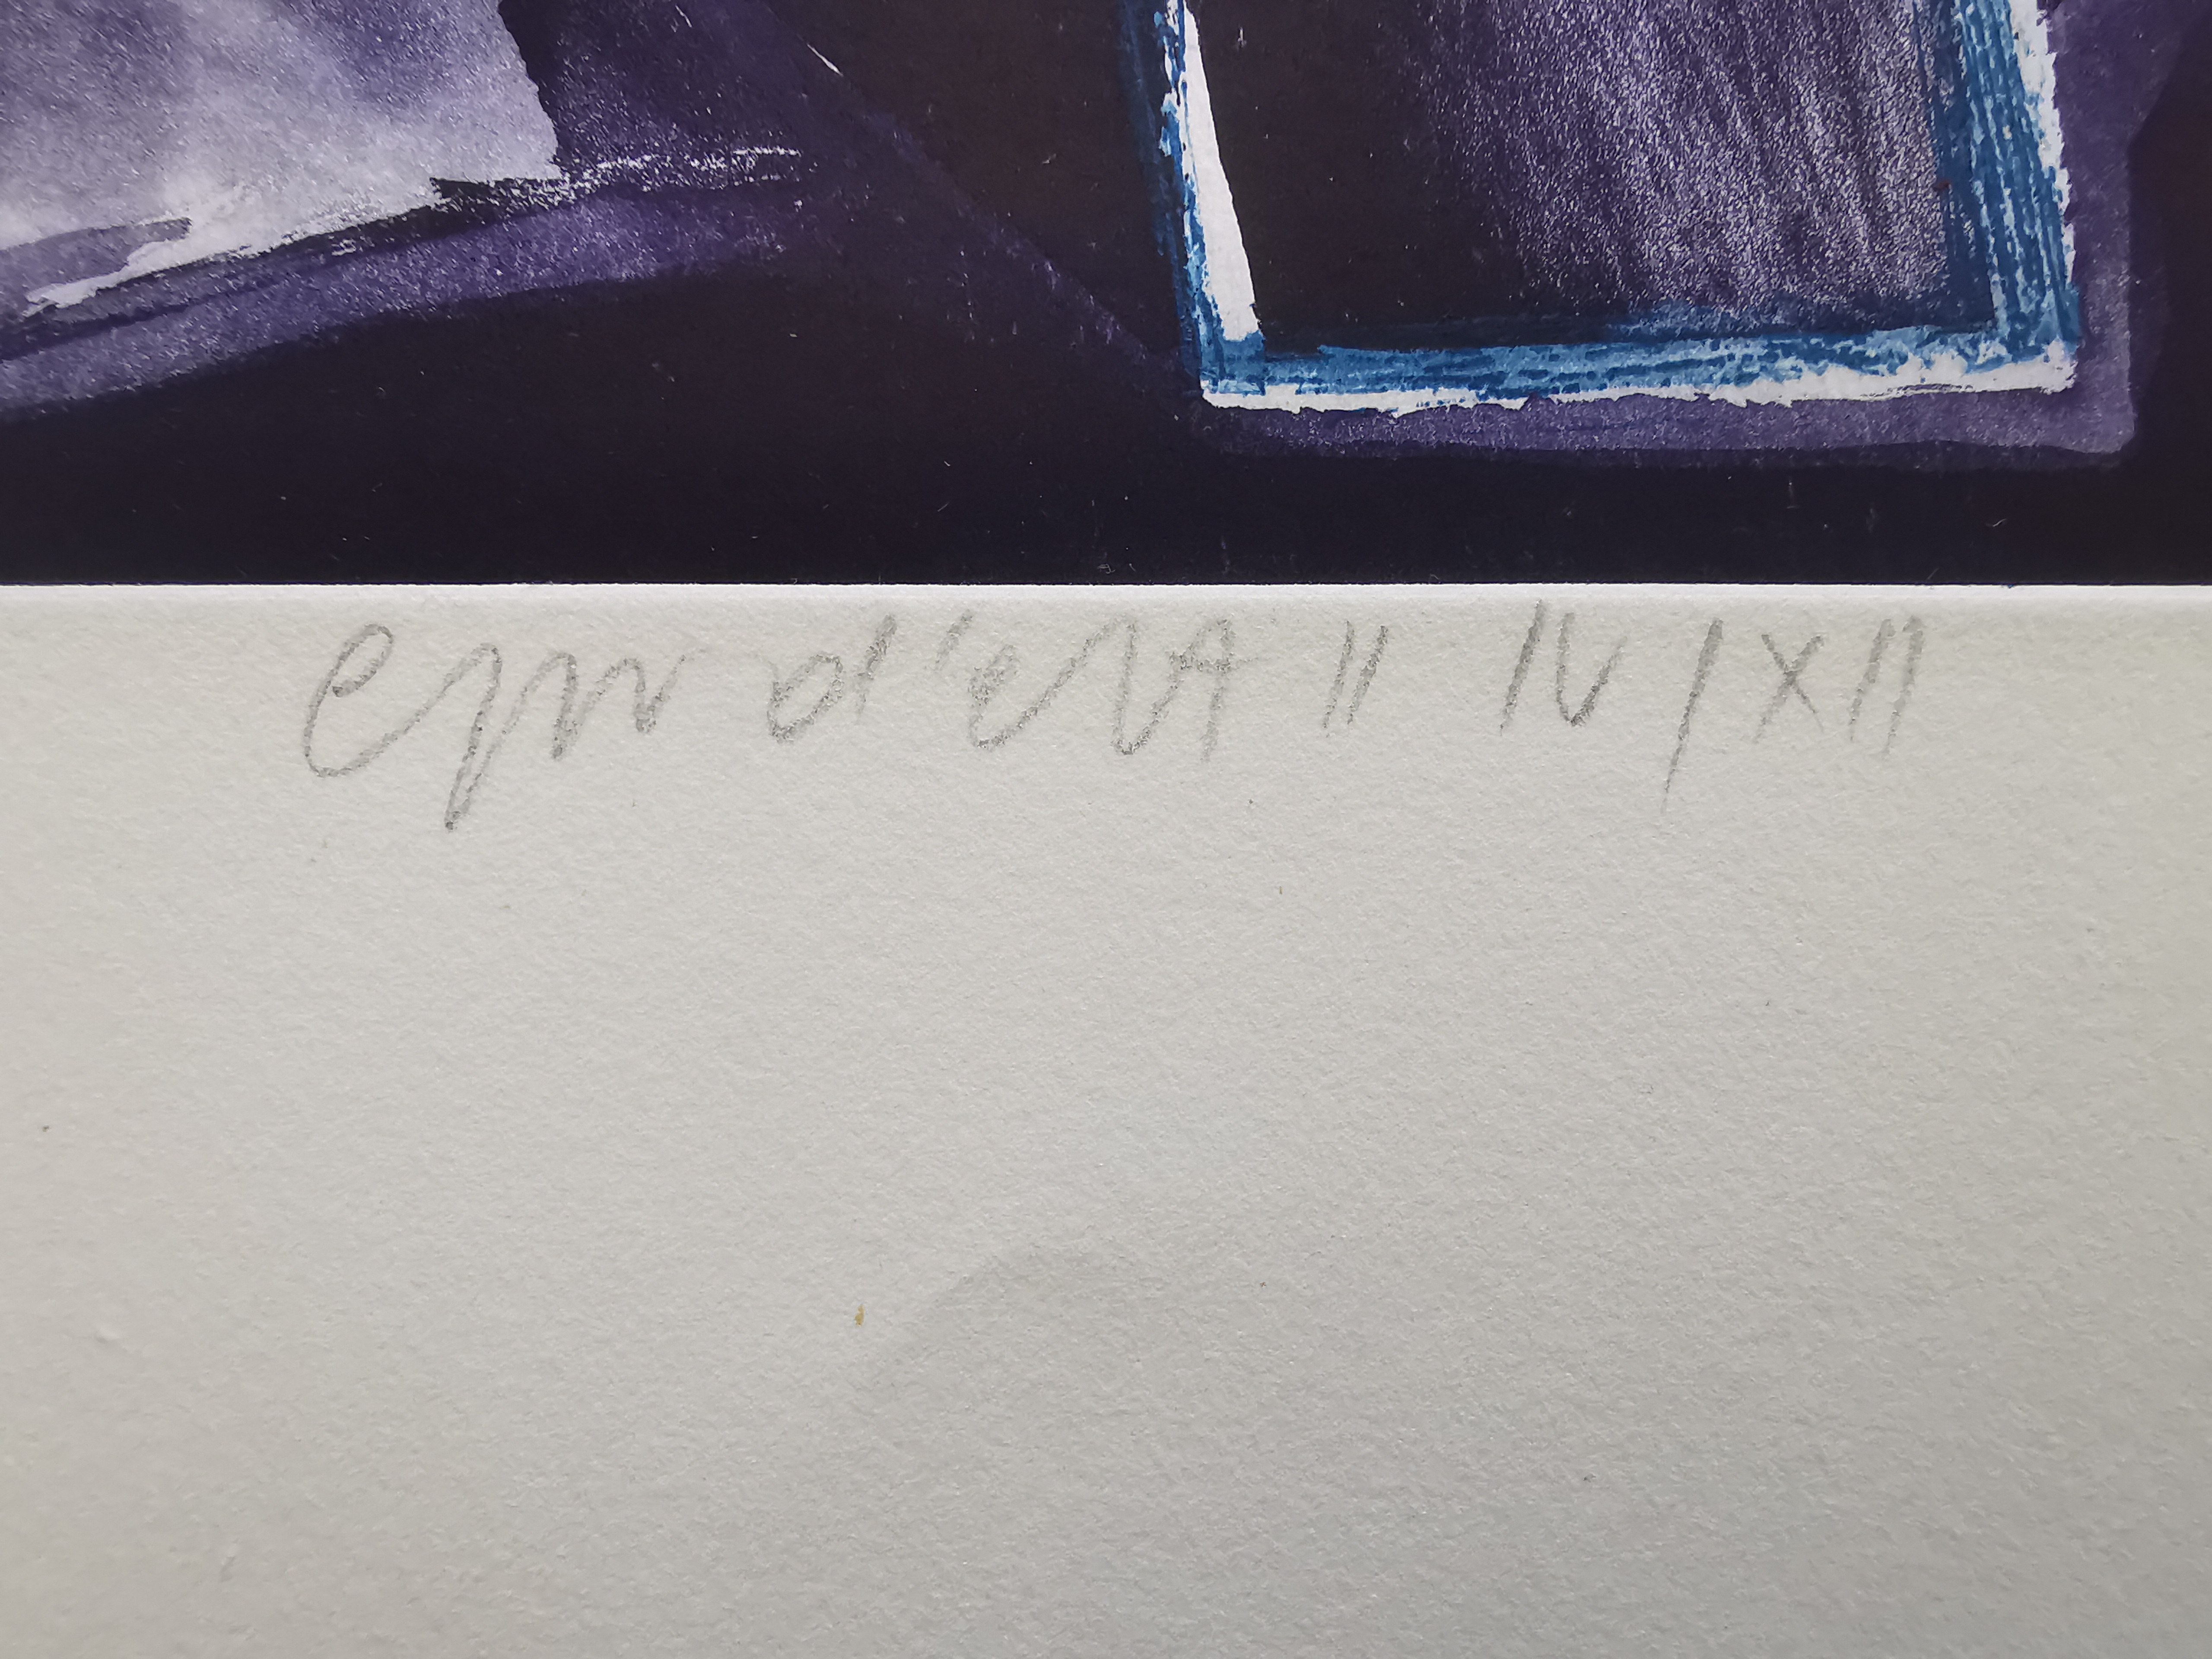 epr d'etat II IV/XII